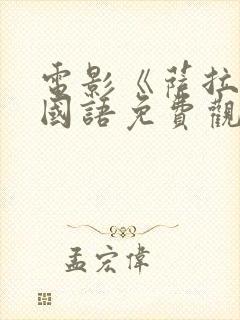 電影《薩拉
國語免費觀
孟宏偉